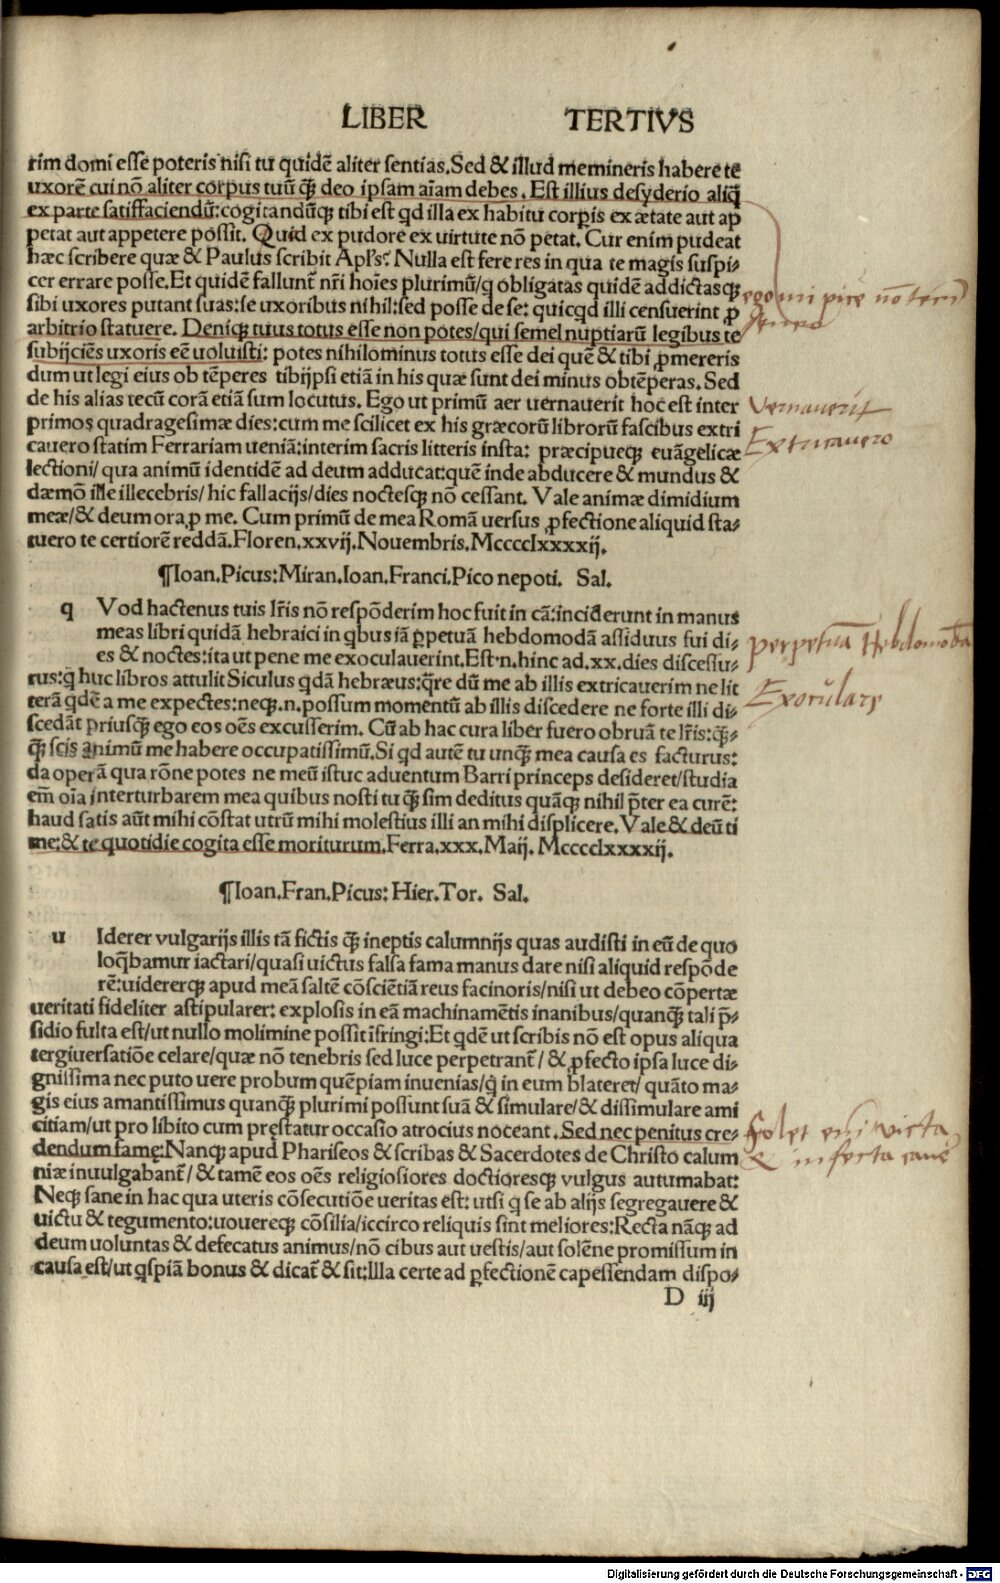 LIBER TERTIVS
rim domi esse poteris nisi tu quidē aliter sentias.Sed & illud memineris habere te
uxorē cui nō aliter corpus tuū ꝙ̄ deo ipsam aīam debes. Est illius desyderio aliq̄
ex parte satiffaciendū:cogitandūq; tibi est qd illa ex habitu corꝑis ex ætate aut ap
petat aut appetere possit. Quid ex pudore ex uirtute nō petat. Cur enim pudeat
hæc scribere quæ & Paulus scribit Apl's? Nulla est fere res in qua te magis suspi-
cer errare posse.Et quidē fallunt̄ nr̄i hoīes plurimū/q obligatas quidē addictasq;
sibi uxores putant suas:se uxoribus nihil:sed posse de se: quicqd illi censuerint ꝓ
arbitrio statuere. Deniq; tuus totus esse non potes/qui semel nuptiarū legibus te
subijciēs uxoris eē uoluisti: potes nihilominus totus esse dei quē & tibi ꝓmereris
dum ut legi eius ob tēperes tibijpsi etiā in his quæ sunt dei minus obtēperas. Sed
de his alias tecū corā etiā sum locutus. Ego ut primū aer uernauerit hoc est inter
primos quadragesimæ dies:cum me scilicet ex his græcorū librorū fascibus extri
cauero statim Ferrariam ueniā:interim sacris litteris insta: præcipueq; euāgelicæ
lectioni/ qua animū identidē ad deum adducat:quē inde abducere & mundus &
dæmō ille illecebris/ hic fallacijs/dies noctesq; nō cessant. Vale animæ dimidium
meæ/& deum ora,ꝓ me. Cum primū de mea Romā uersus ꝓfectione aliquid sta-
tuero te certiorē reddā.Floren.xxvij.Nouembris.Mcccclxxxxij.
¶Ioan.Picus:Miran.Ioan.Franci.Pico nepoti. Sal.
q Vod hactenus tuis lr̄is nō respōderim hoc fuit in cā:inciderunt in manus
meas libri quidā hebraici in qbus iā ꝑpetuā hebdomodā assiduus fui di-
es & noctes:ita ut pene me exoculauerint.Est.n.hinc ad.xx.dies discessu-
rus:q huc libros attulit Siculus qdā hebræus:q̄re dū me ab illis extricauerim ne lit
terā qdē a me expectes:neq;.n.possum momentū ab illis discedere ne forte illi di-
scedāt priusꝙ̄ ego eos oēs excusserim. Cū ab hac cura liber fuero obruā te lr̄is:ꝙ̄-
ꝙ̄ scis animū me habere occupatissimū.Si qd autē tu unꝙ̄ mea causa es facturus:
da operā qua rōne potes ne meū istuc aduentum Barri princeps desideret/studia
em̄ oīa interturbarem mea quibus nosti tu ꝙ̄ sim deditus quāq; nihil p̄ter ea curē:
haud satis aūt mihi cōstat utrū mihi molestius illi an mihi displicere. Vale & deū ti
me:& te quotidie cogita esse moriturum.Ferra.xxx.Maij. Mcccclxxxxij.
¶Ioan.Fran.Picus: Hier.Tor. Sal.
u Iderer vulgarijs illis tā fictis ꝙ̄ ineptis calumnijs quas audisti in eū de quo
loq̄bamur iactari/quasi uictus falsa fama manus dare nisi aliquid respōde
rē:uidererq; apud meā saltē cōsciētiā reus facinoris/nisi ut debeo cōpertæ
ueritati fideliter astipularer: explosis in eā machinamētis inanibus/quanꝙ̄ tali p̄-
sidio fulta est/ut nullo molimine possit īfringi:Et qdē ut scribis nō est opus aliqua
tergiuersatiōe celare/quæ nō tenebris sed luce perpetrant̄/ & ꝓfecto ipsa luce di-
gnissima nec puto uere probum quēpiam inuenias/q̇ in eum blateret/ quāto ma-
gis eius amantissimus quanꝙ̄ plurimi possunt suā & simulare/& dissimulare ami
citiam/ut pro libito cum pręstatur occasio atrocius noceant. Sed nec penitus cre-
dendum famę:Nanq; apud Phariseos & scribas & Sacerdotes de Christo calum
niæ inuulgabant̄/ & tamē eos oēs religiosiores doctioresq; vulgus autumabat:
Neq; sane in hac qua uteris cōsecutiōe ueritas est: utsi q se ab alijs segregauere &
uictu & tegumento:uouereq; cōsilia/iccirco reliquis sint meliores:Recta nāq; ad
deum uoluntas & defecatus animus/nō cibus aut uestis/aut solēne promissum in
causa est/ut qspiā bonus & dicat̄ & sit:Illa certe ad ꝑfectionē capessendam dispo-
D iij
Vernauerit
Extricauero
perpetuā Hebdomodā
Exoculare
Digitalisierung gefördert durch die Deutsche Forschungsgemeinschaft - DFG